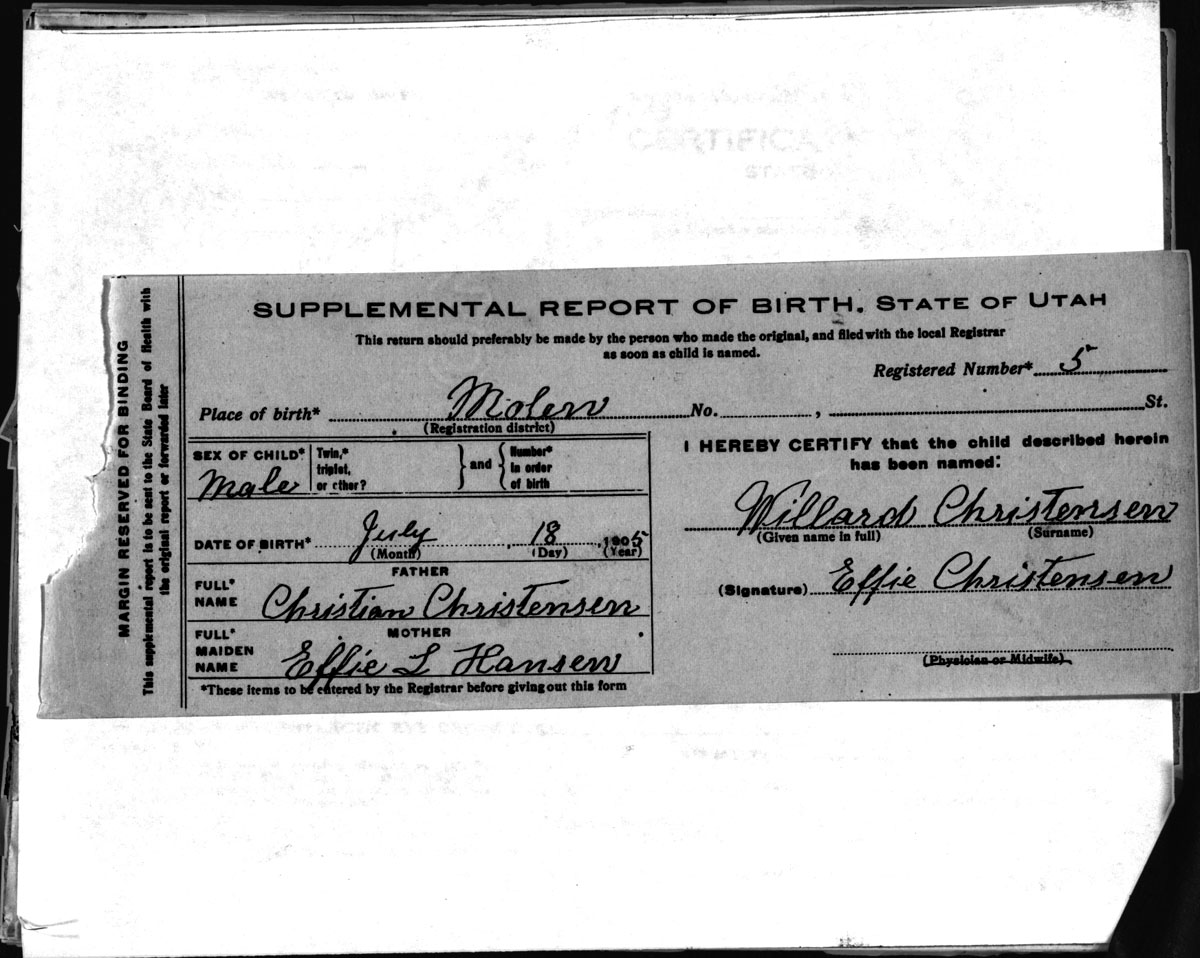 SUPPLEMENTAL REPORT OF BIRTH. STATE OF UTAH
This return should preferably be made by the person who made the original, and filed with the local Registrar
as soon as child is named.
Registered Number* 5
Place of birth* Molen No. , St.
(Registration district)
SEX OF CHILD*
Male
Twin,*
triplet,
or other?
and
Number*
in order
of birth
DATE OF BIRTH* July 18, 1905
(Month) (Day) (Year)
FATHER
FULL*
NAME
Christian Christensen
MOTHER
FULL*
MAIDEN
NAME
Effie L Hansen
*These items to be entered by the Registrar before giving out this form
I HEREBY CERTIFY that the child described herein
has been named:
Willard Christensen
(Given name in full) (Surname)
(Signature) Effie Christensen
(Physician or Midwife)
MARGIN RESERVED FOR BINDING
This supplemental report is to be sent to the State Board of Health with
the original report or forwarded later